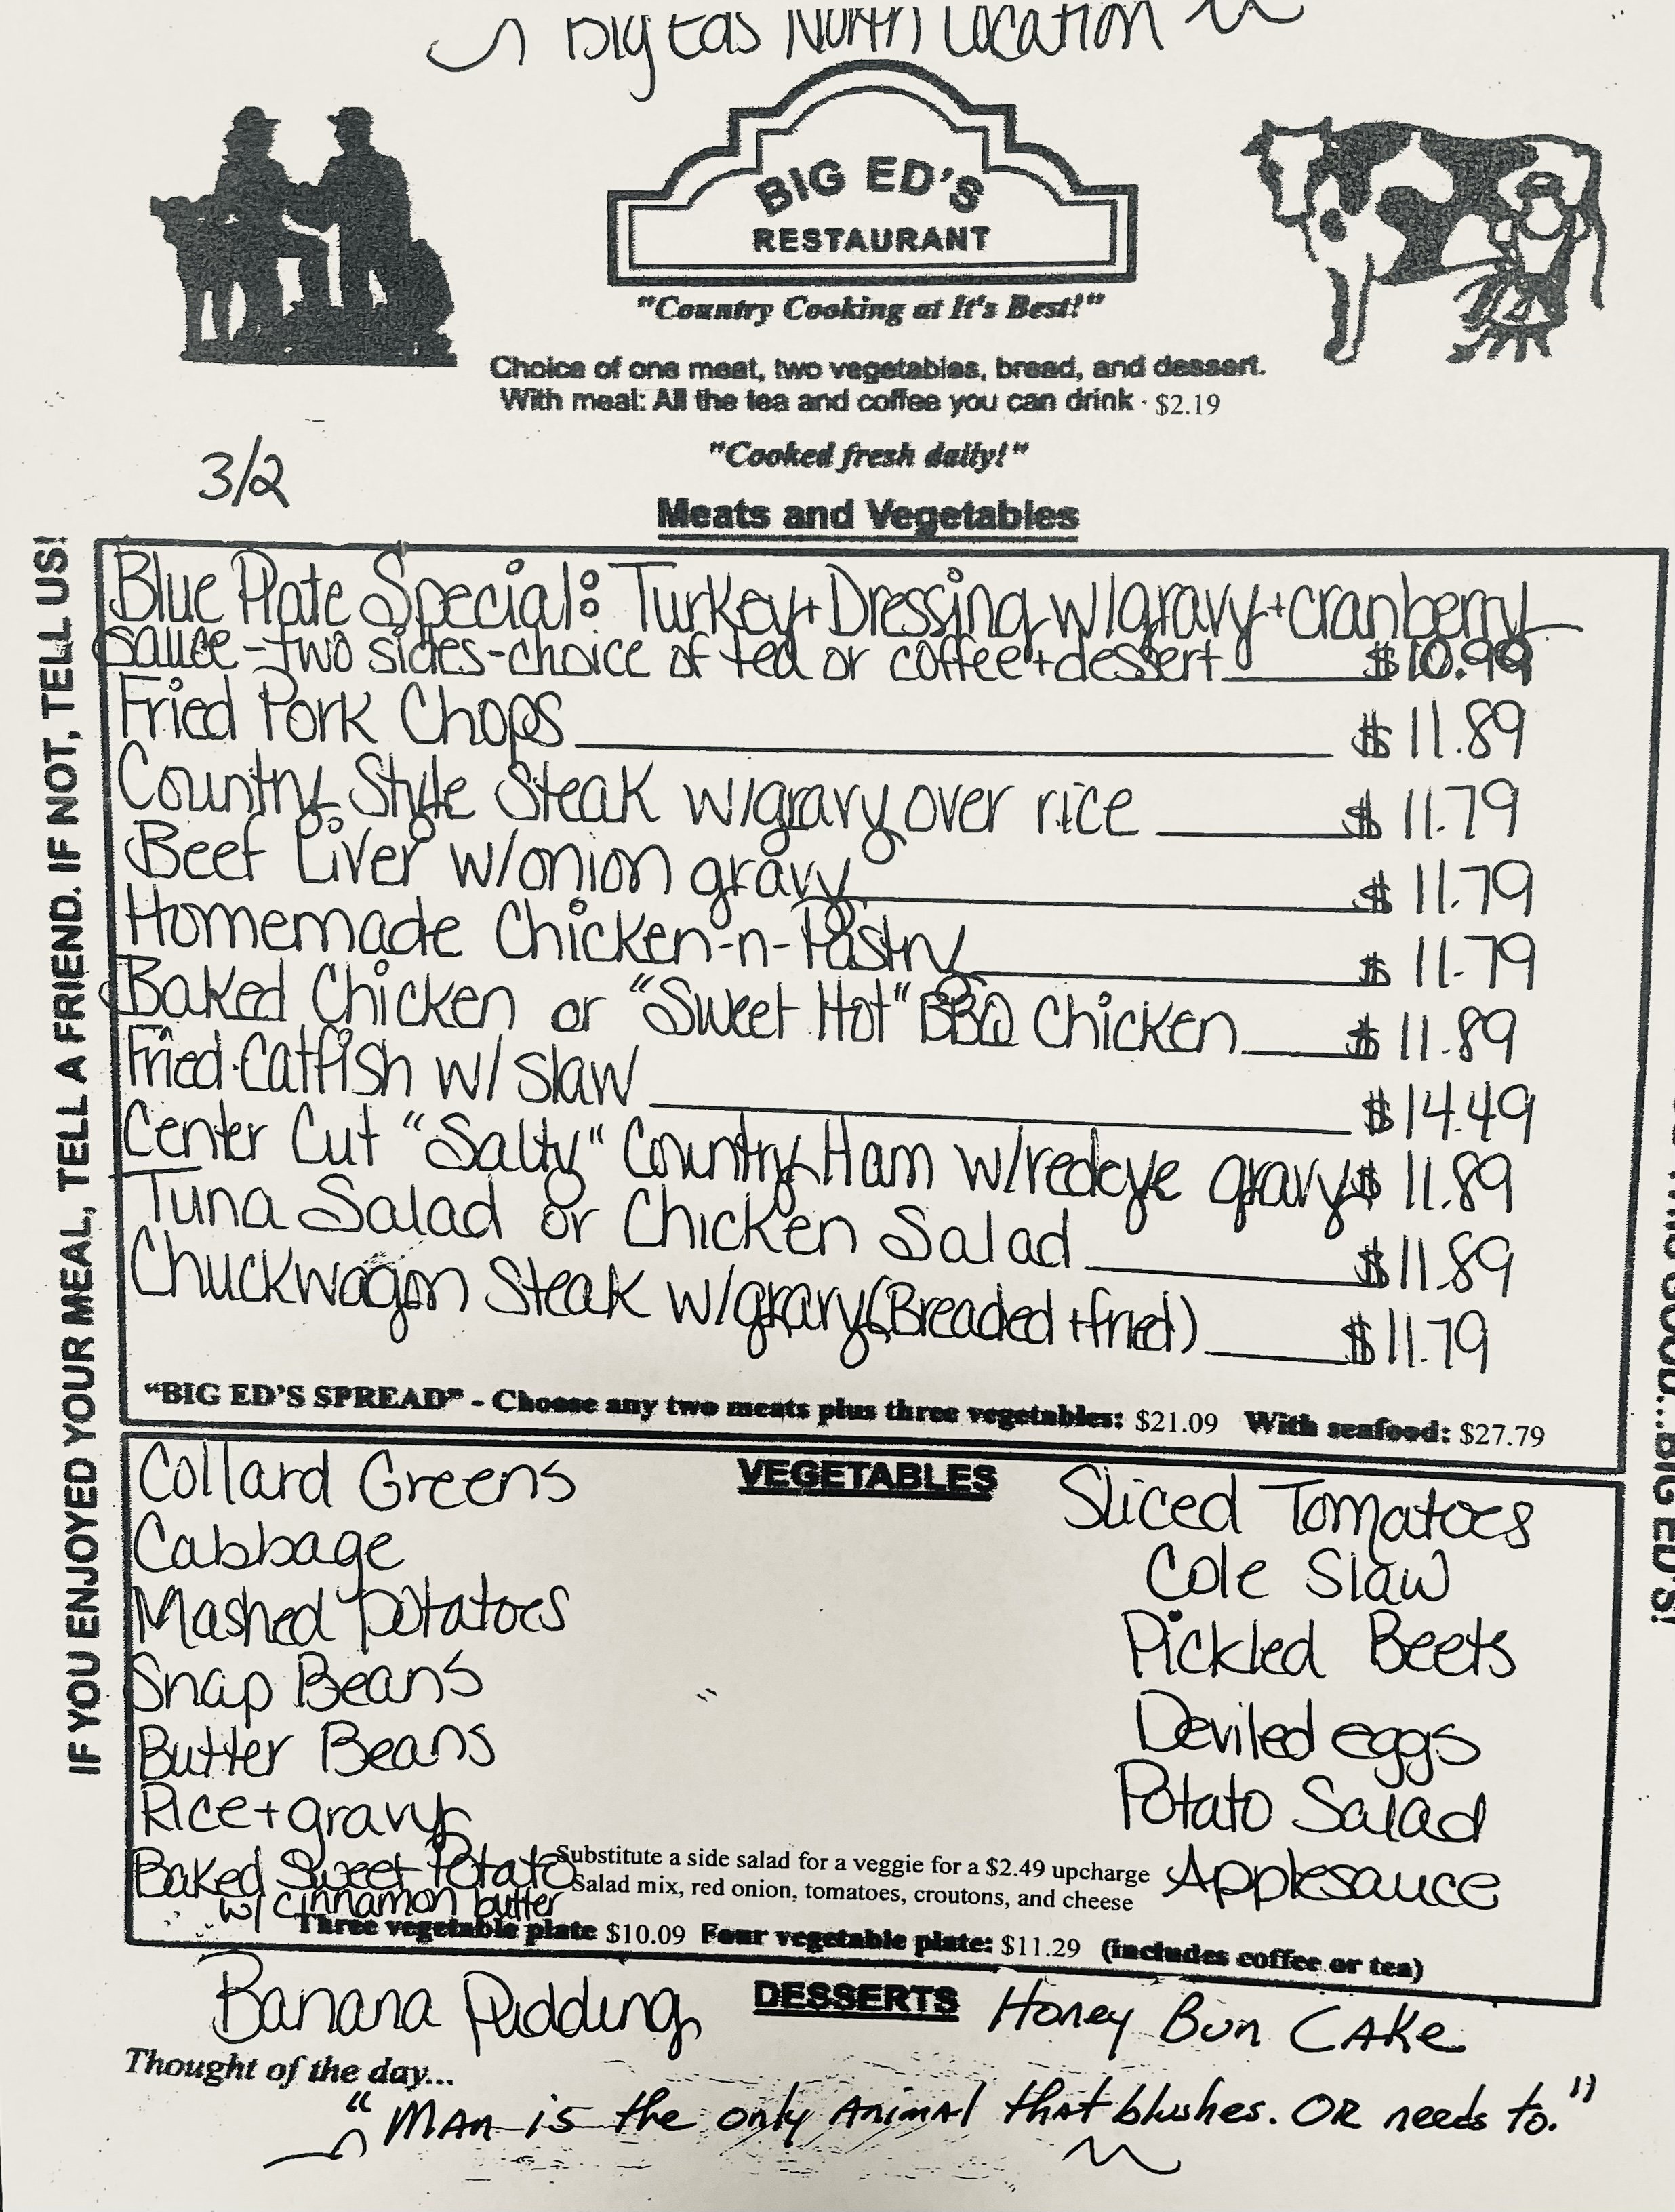 Big Eds North Location
BIG ED'S
RESTAURANT
"Country Cooking at It's Best!"
Choice of one meat, two vegetables, bread, and dessert.
With meal: All the tea and coffee you can drink · $2.19
"Cooked fresh daily!"
3/2
Meats and Vegetables
Blue Plate Special: Turkey + Dressing w/gravy + cranberry
sauce - two sides - choice of tea or coffee + dessert $10.99
Fried Pork Chops $11.89
Country Style Steak w/gravy over rice $11.79
Beef Liver w/onion gravy $11.79
Homemade Chicken-n-Pastry $11.79
Baked Chicken or "Sweet Hot" BBQ Chicken $11.89
Fried Catfish w/ slaw $14.49
Center Cut "Salty" Country Ham w/redeye gravy $11.89
Tuna Salad or Chicken Salad $11.89
Chuckwagon Steak w/gravy (Breaded + fried) $11.79
"BIG ED'S SPREAD" - Choose any two meats plus three vegetables: $21.09 With seafood: $27.79
VEGETABLES
Collard Greens
Cabbage
Mashed Potatoes
Snap Beans
Butter Beans
Rice + gravy
Baked Sweet Potato
w/ cinnamon butter
Sliced Tomatoes
Cole Slaw
Pickled Beets
Deviled eggs
Potato Salad
Applesauce
Substitute a side salad for a veggie for a $2.49 upcharge
Salad mix, red onion, tomatoes, croutons, and cheese
Three vegetable plate $10.09 Four vegetable plate: $11.29 (includes coffee or tea)
DESSERTS
Banana Pudding
Honey Bun CAKe
Thought of the day...
"MAn is the only AnimAl thAt blushes. OR needs to."
IF YOU ENJOYED YOUR MEAL, TELL A FRIEND. IF NOT, TELL US!
GOOD...BIG ED'S!